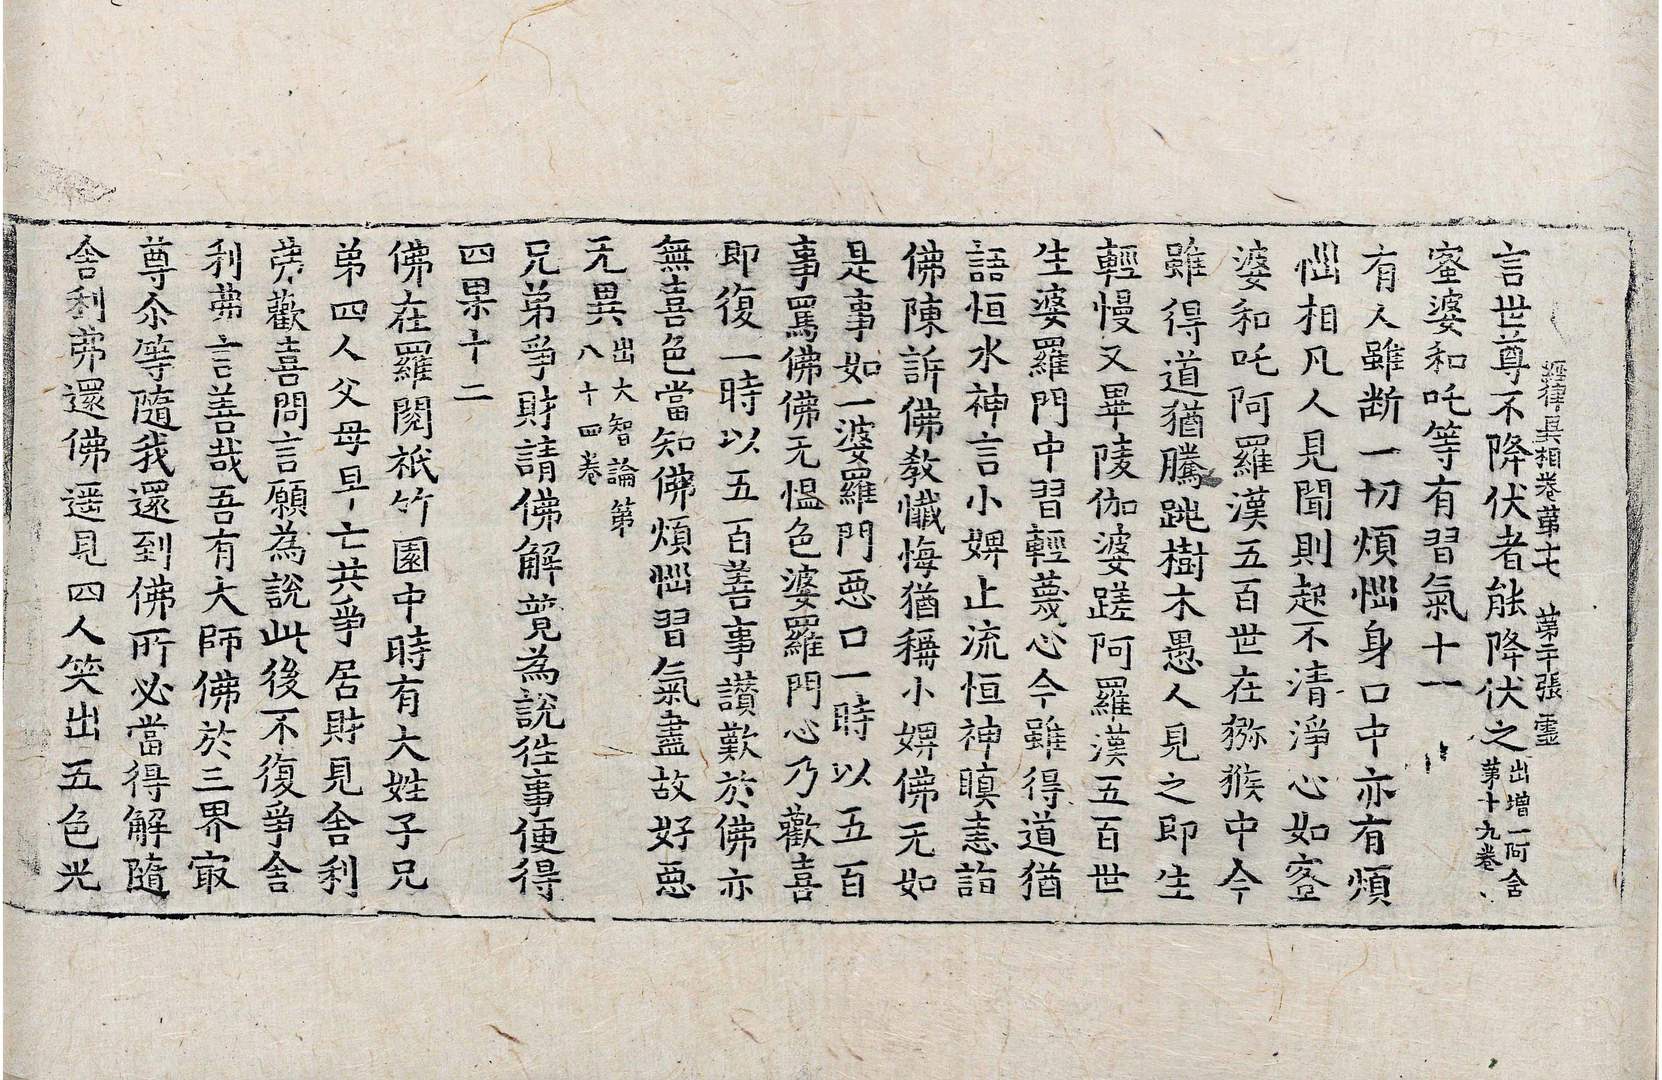 經律異相卷第七　第二十張　靈
言世尊不降伏者能降伏之出增一阿含第十九卷
蜜婆和吒等有習氣十一
有人雖断一切煩惱身口中亦有煩
惱相凡人見聞則起不清淨心如蜜
婆和吒阿羅漢五百世在獼猴中今
雖得道猶騰跳樹木愚人見之即生
輕慢又畢陵伽婆蹉阿羅漢五百世
生婆羅門中習輕蔑心今雖得道猶
語恒水神言小婢止流恒神瞋恚詣
佛陳訴佛教懺悔猶稱小婢佛无如
是事如一婆羅門惡口一時以五百
事罵佛佛无愠色婆羅門心乃歡喜
即復一時以五百善事讃歎於佛亦
無喜色當知佛煩惱習氣盡故好惡
无異出大智論第八十四卷
兄弟爭財請佛解競為說往事便得
四果十二
佛在羅閱祇竹園中時有大姓子兄
弟四人父母早亡共爭居財見舍利
弗歡喜問言願為說此後不復爭舍
利弗言善哉吾有大師佛於三界最
尊尒等隨我還到佛所必當得解隨
舍利弗還佛遥見四人笑出五色光